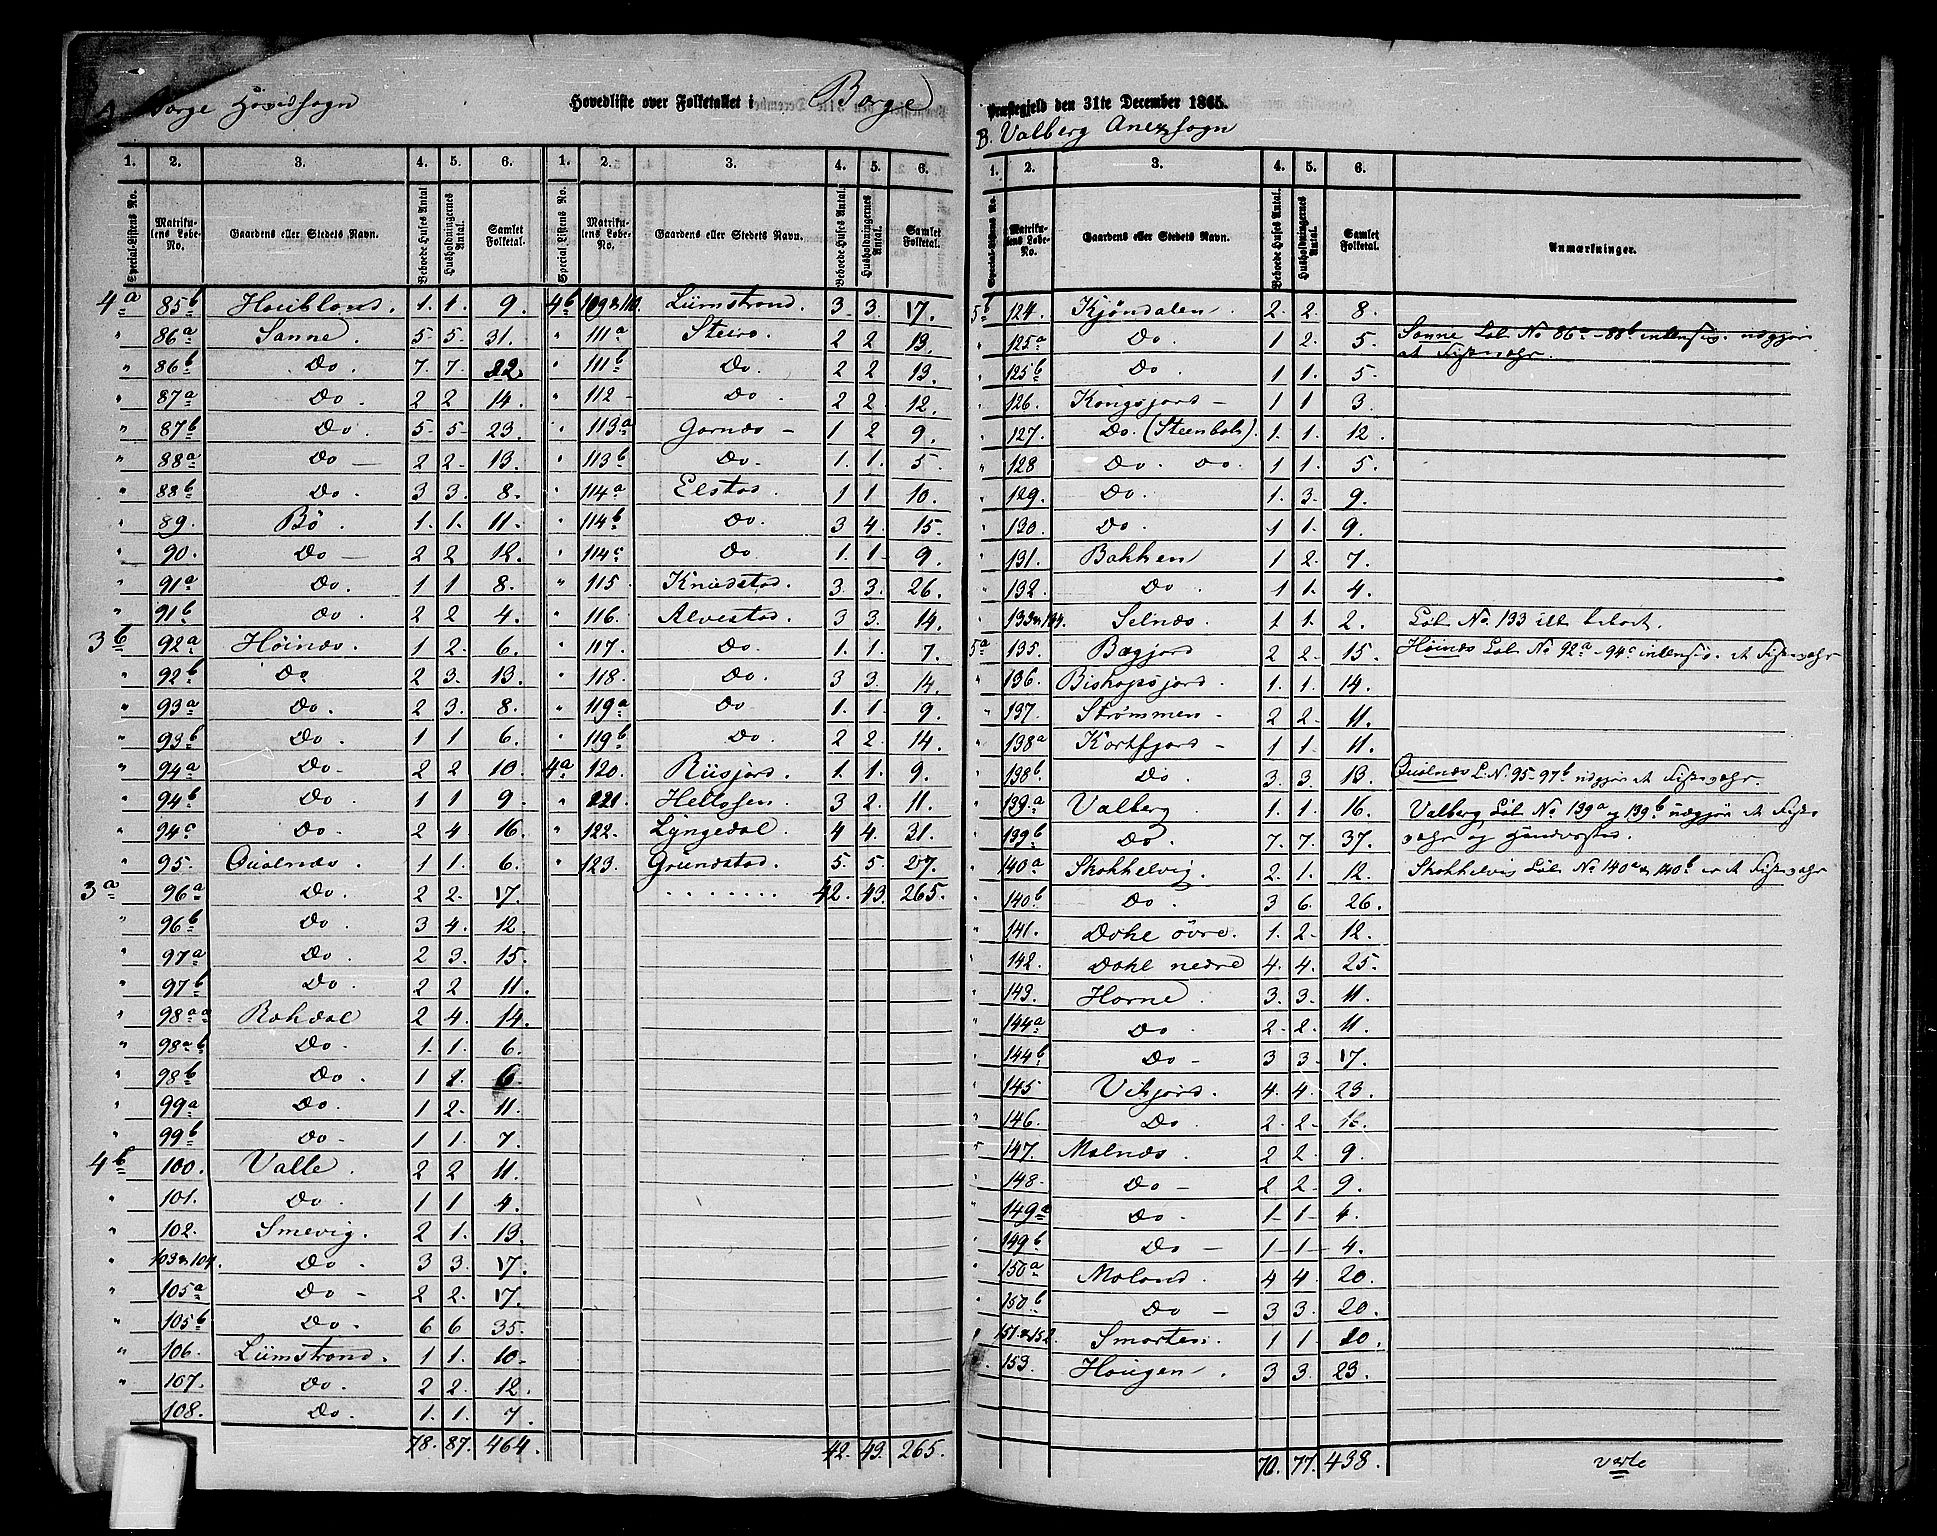 A. Borge Hovedsogn Hovedliste over Folketallet i Borge
1. 2. 3. 4. 5. 6. 1. 2. 3. 4. 5. 6.
Special-Listens No. Matrikulens Løbe-No. Gaardens eller Stedets Navn. Beboede Huses Antal Husholdningernes Antal. Samlet Folketal. Special Listens No. Matrikulens Løbe-No. Gaardens eller Stedets Navn. Beboede Huses Antal. Husholdningernes Antal. Samlet Folketal.
4a 85b Houkland. 1. 1. 9. 4b 109 & 110 Limstrand. 3. 3. 17.
" 86a Sanne. 5. 5. 31. " 111a Steiro. 2 2 13.
" 86b Do. 7. 7. 22. " 111b Do. 2 2 13.
" 87a Do. 2 2 14. " 112 Do. 2 2 12.
" 87b Do. 5. 5. 23. " 113a Garnæs 1 2 9.
" 88a Do 2 2. 13. " 113b Do. 1. 1. 5.
" 88b Do. 3 3. 8. " 114a Elstad. 1 1 10.
" 89. Bö. 1. 1. 11. " 114b Do. 3 4. 15.
" 90. Do 2 2 12. " 114c Do 1. 1 9.
" 91a Do. 1 1 8. " 115 Knudstad. 3. 3. 26.
" 91b Do. 2 2 4. " 116. Alvestad. 3 3. 14.
3b 92a Höinæs. 1 2. 6. " 117. Do. 1. 1. 7.
" 92b Do 2 3. 13. " 118. Do. 3 3. 14.
" 93a Do. 2 3. 8. " 119a Do 1. 1. 9.
" 93b Do. 1 1 6. " 119b Do. 2 2. 14.
" 94a Do. 2 2 10. 4a 120. Rüsjord. 1. 1. 9.
" 94b Do. 1 1 9. " 121. Heltosen. 3 2. 11.
" 94c Do. 2 4 16. " 122. Lyngedal. 4 4. 31.
" 95. Qualnæs. 1 1. 6. " 123. Grundstad. 5. 5. 27.
3a 96a Do. 2 2. 17. . . . . . . . 42. 43. 265.
" 96b Do. 3 4. 12.
" 97a Do. 2 3. 15.
" 97b Do. 2 2 11.
" 98aa Rohdal 2 4. 14.
" 98ab Do. 1. 1. 6.
" 98b Do. 1 1. 6.
" 99a Do. 1 2. 11.
" 99b Do 1 1. 7.
4b 100. Valle. 2 2 11.
" 101. Do. 1 1 4.
" 102. Smevig. 2 1. 13.
" 103 & 104. Do. 3 3. 17.
" 105a Do 2 2. 17.
" 105b Do. 6 6. 35.
" 106. Limstrand. 1 1. 10.
" 107. Do. 2 2. 12.
108. Do. 1. 1. 7.
78. 87. 464. 42. 43. 265.
Præstegjeld den 31te December 1865.
B. Valberg Anexsogn
1. 2. 3. 4. 5. 6.
Special-Listens No. Matrikulens Løbe-No. Gaardens eller Stedets Navn. Beboede Huses Antal. Husholdningernes Antal. Samlet Folketal. Anmærkninger.
5b 124. Kjöndalen. 2. 2. 8.
" 125a Do. 1 2. 5. Sanne Löb. No 86a-88b udgjör
" 125b Do. 1 1. 5. et Fiskevær.
" 126. Kongsjord 1 1 3.
" 127. Do. (Steenbak). 1. 1. 12.
" 128 Do. Do. 1 1. 5.
" 129. Do. 1. 3. 9.
" 130. Do. 1 1. 9.
" 131. Bakken 1 2. 7.
" 132. Do. 1 1. 4.
" 133 & 134. Selnæs. 1 1. 2. Löb. No. 133 ikke beboet.
5a 135. Bægjord 2 2. 15. Höinæs Löb. No 92a - 94c et Fiskevær
" 136. Bishopsjord. 1. 1. 14.
" 137. Strømmen 2 2. 11.
" 138a Kortfjord 1 1 11.
" 138b. Do. 3. 3. 13. Qualnæs L. N. 95-97b udgjör et Fiskevær.
" 139a Valberg. 1 1. 16. Valberg Löb. No 139a og 139b udgjör et Fiske-
" 139b Do. 7. 7. 37. vær og Handelssted.
" 140a Skokkelvig. 2. 1. 12. Skokkelvig Löb. No 140a & 140b er et Fiskevær
" 140b Do. 3 6. 26.
" 141. Dahl övre. 1. 2. 12.
" 142. Dahl nedre 4. 4. 25.
" 143. Horne. 3. 3. 11.
" 144a Do. 2. 2. 11.
" 144b Do 3 3. 17.
" 145 Vikjord. 4. 4. 23.
" 146. Do. 2. 2. 16.
" 147. Malnæs. 2 2. 9.
" 148. Do 2 2. 9.
" 149a Do. 1 1. 4.
" 149b Do 1 1 4.
" 150a Maland. 4 4. 20.
" 150b Do 3 3. 20.
" 151 & 152 Smorten. 1 1. 10.
" 153. Hougen. 3 3. 23.
70. 77. 438. verte